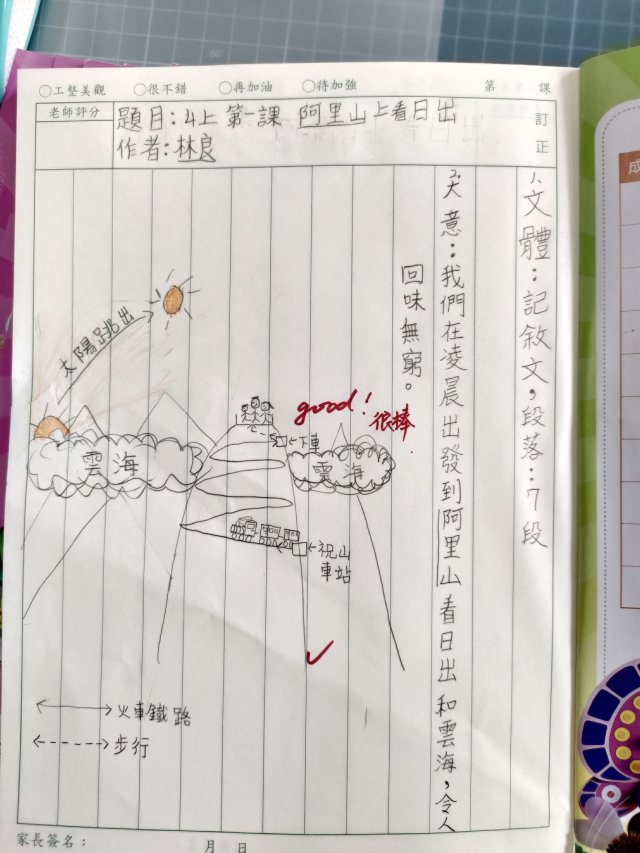 ○工整美觀 ○很不錯 ○再加油 ○待加強 第 課
老師評分
題目：4上 第一課 阿里山上看日出
作者：林良
訂正
1、文體：記敘文，段落：7段
2、大意：我們在凌晨出發到阿里山看日出和雲海，令人
回味無窮。
太陽跳出
good!
很棒
下車
雲海
雲海
祝山
車站
火車鐵路
步行
家長簽名： 月 日
成